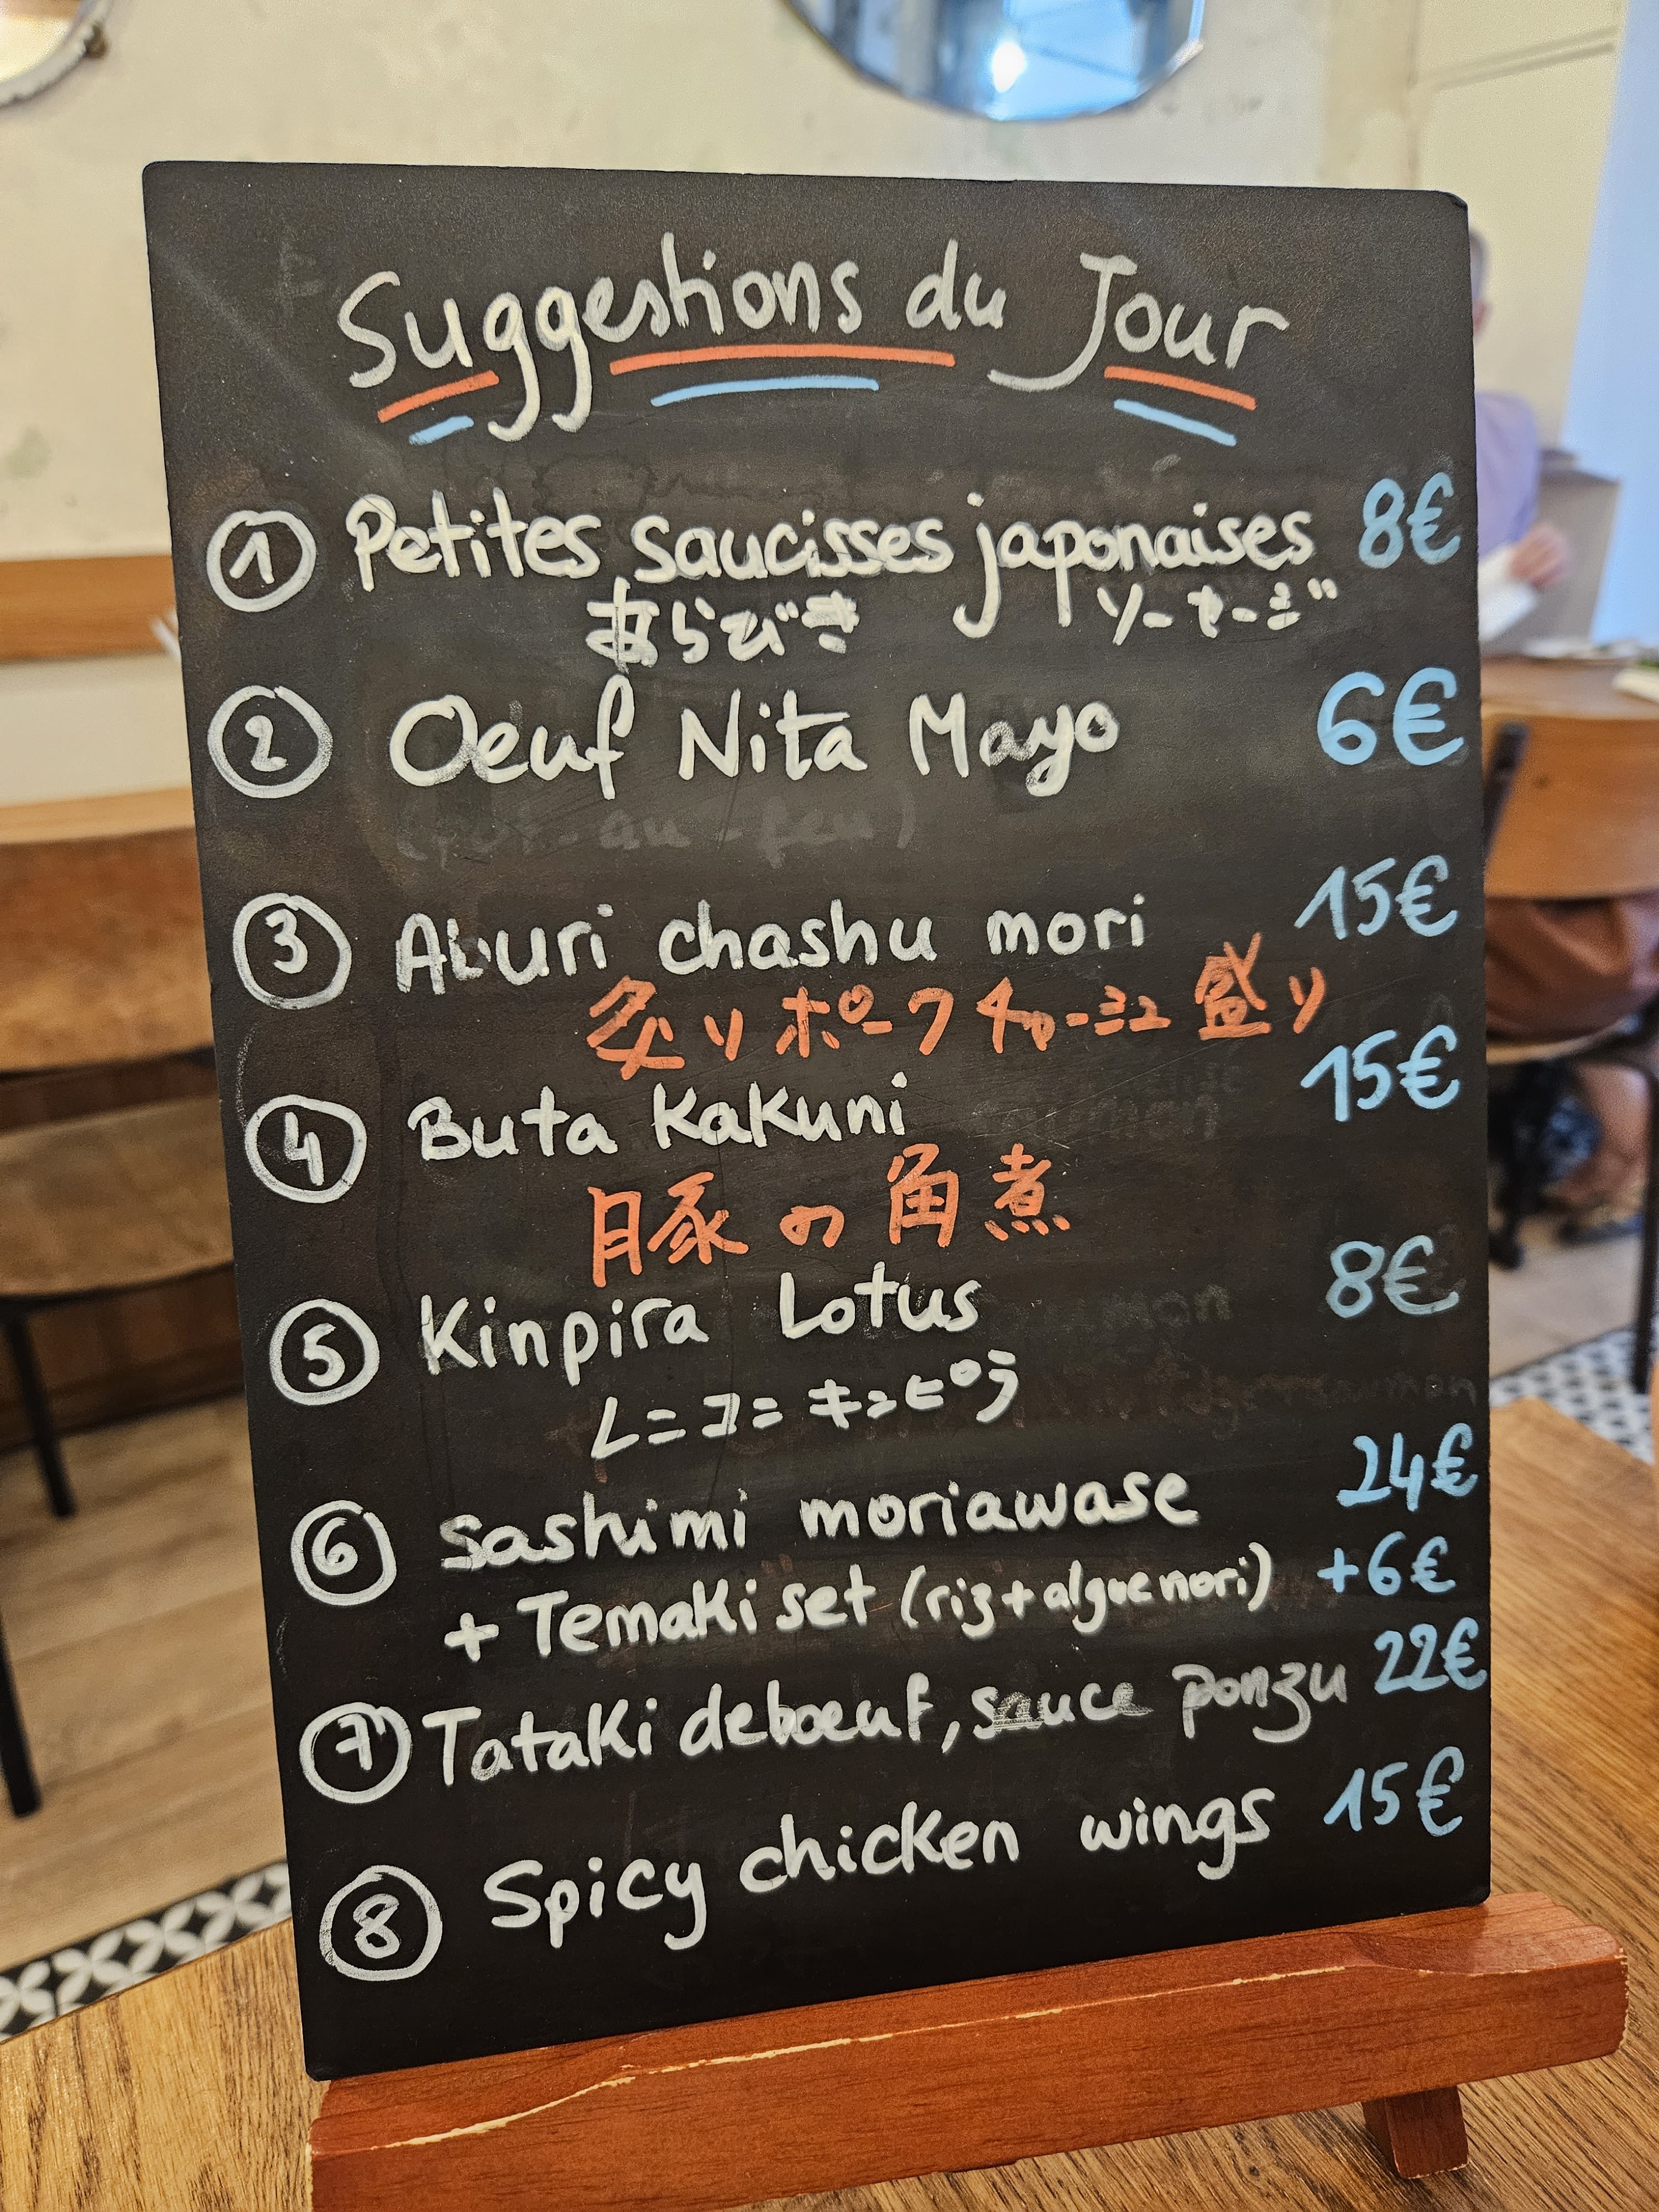 Suggestions du Jour
① Petites saucisses japonaises 8€
あらびき ソーセージ
② Oeuf Nita Mayo 6€
(pot-au-feu)
③ Aburi chashu mori 15€
炙りポークチャーシュー盛り
④ Buta Kakuni 15€
豚の角煮
⑤ Kinpira Lotus 8€
レンコンキンピラ
⑥ Sashimi moriawase 24€
+ Temaki set (riz + algue nori) +6€
⑦ Tataki de boeuf, sauce ponzu 22€
⑧ Spicy chicken wings 15€